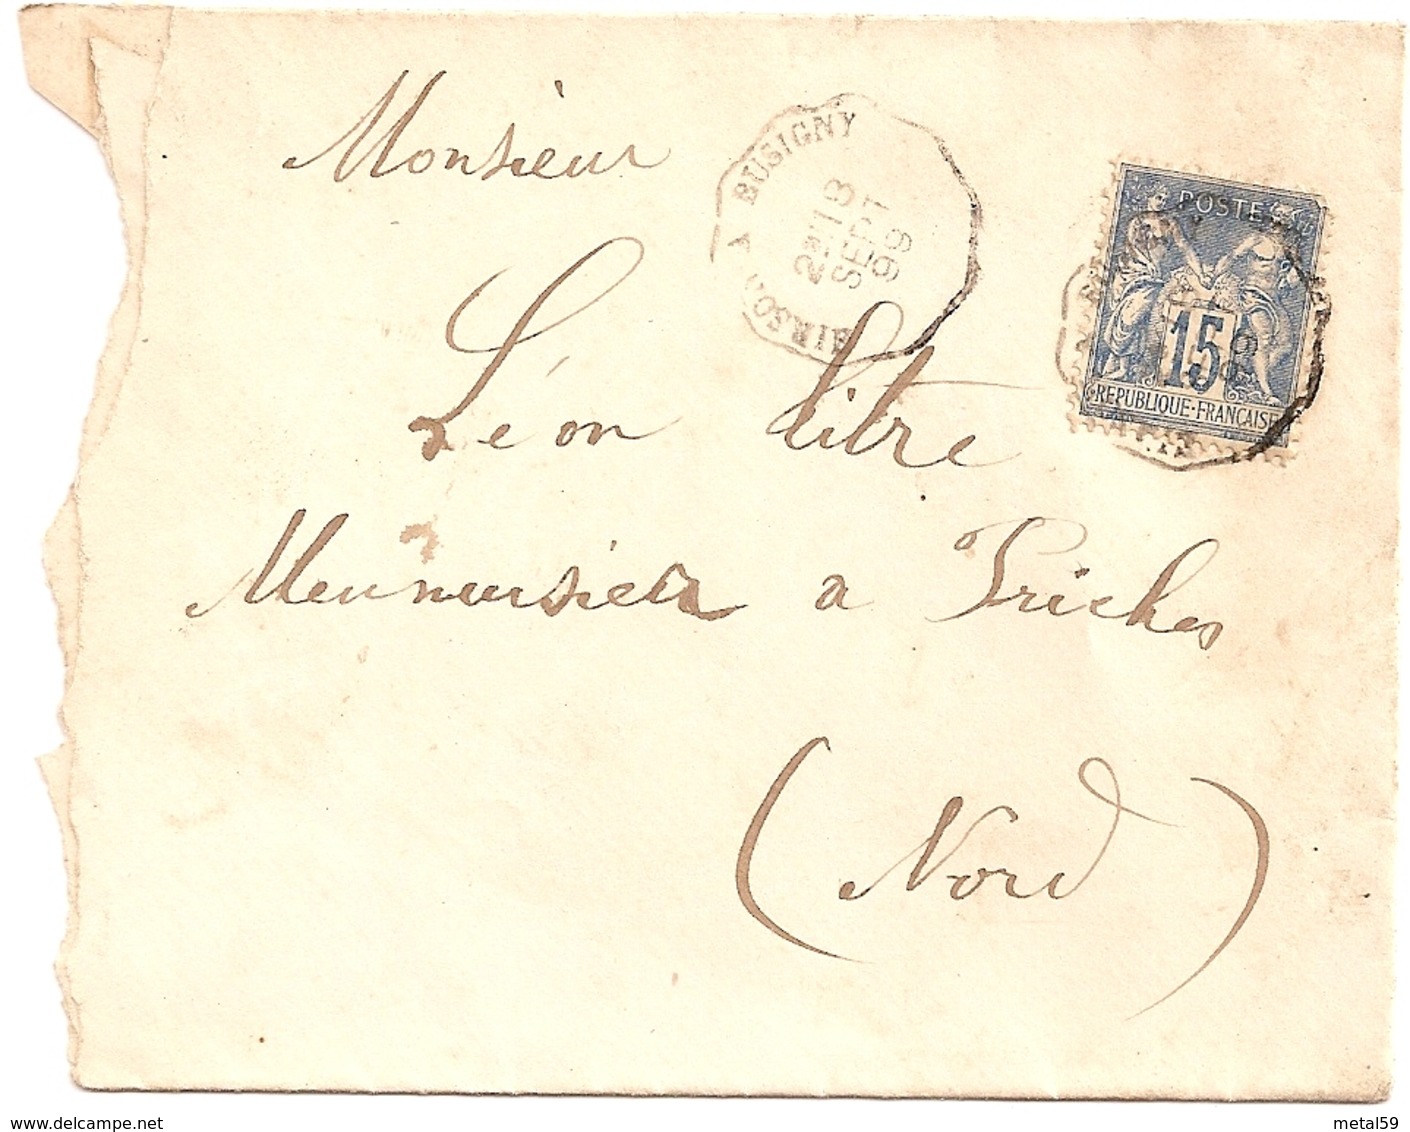 Monsieur
HIRSON A BUSIGNY
2E 18
SEPT
99
POSTE
15
REPUBLIQUE·FRANÇAISE
Léon Litre
Menuisier a Prisches
(Nord)
www.delcampe.net
metal59